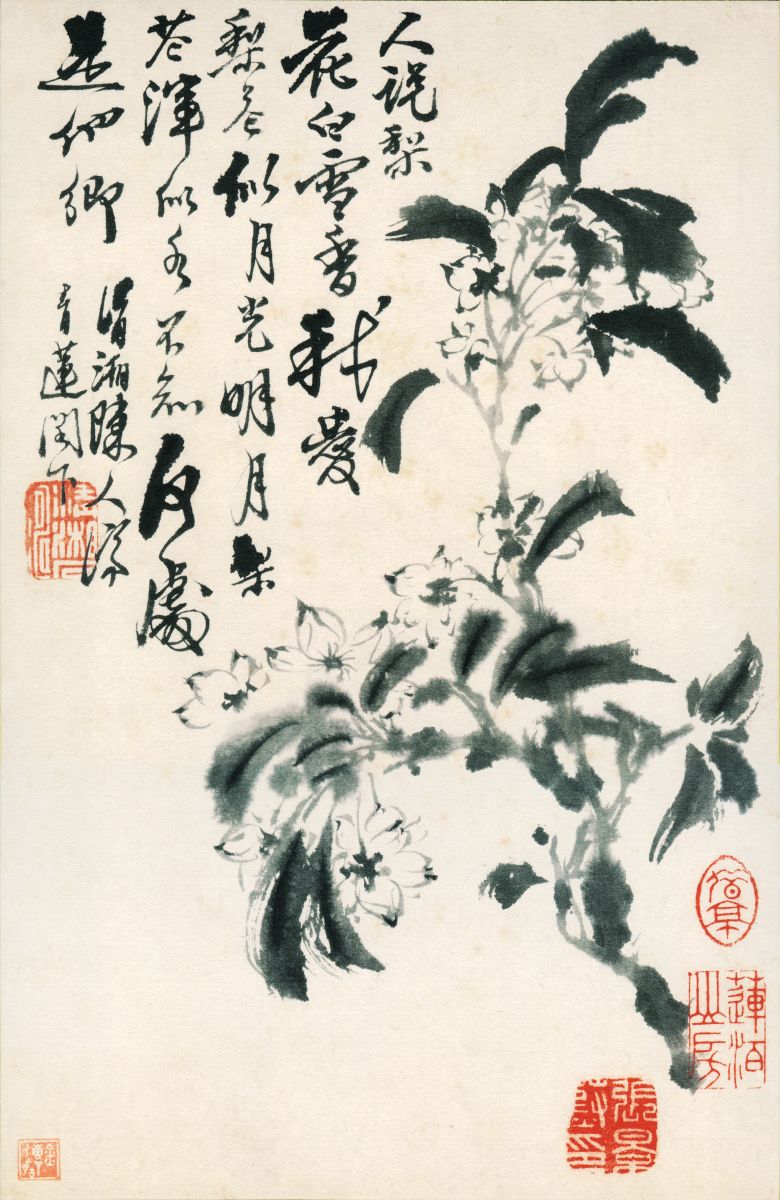 人說梨
花白雪香我愛
梨花似月光明月梨
花渾似水不知何處
是他鄉
清湘陳人濟
青蓮閣下